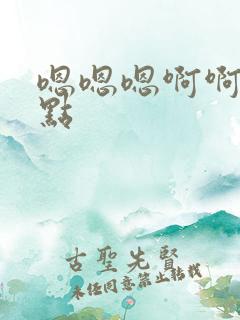 嗯嗯嗯啊啊
點
古聖先賢
未經同意禁止轉載